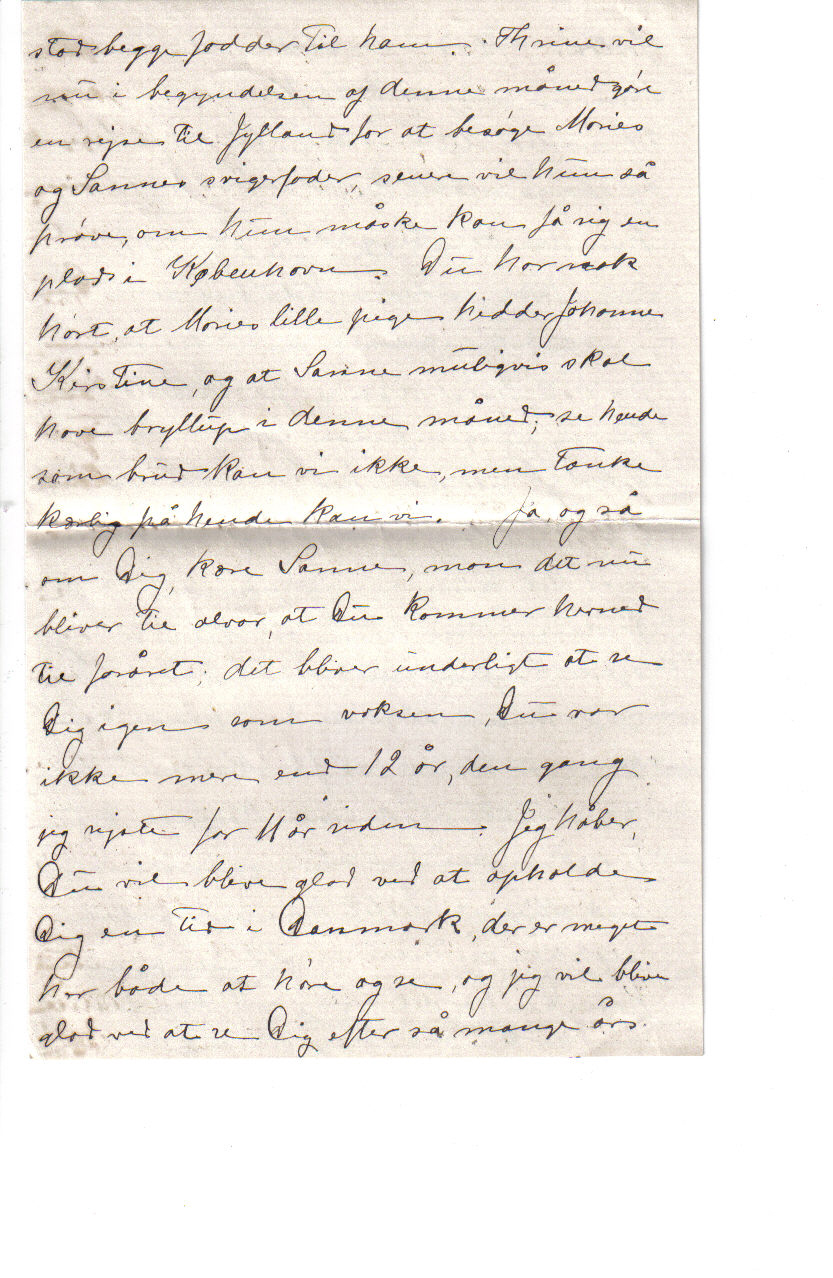 stod begge fodder til ham. Thrine vil
nu i begyndelsen af denne måned göre
en rejse til Jylland for at besöge Maries
og Sannes svigerfader, senere vil hun så
pröve, om hun måske kan få sig en
plads i København. Du har nok
hört, at Maries lille pige hedder Johanne
Kirstine, og at Sanne muligvis skal
have bryllup i denne måned; se hende
som brud kan vi ikke, men tænke
kærlig på hende kan vi. Ja, og så
om Dig, kære Sanne, mon det nu
bliver til alvor, at Du kommer herned
til foråret; det bliver underligt at se
Dig igen som voksen, Du var
ikke mere end 12 år, den gang
jeg rejste for 11 år siden. Jeg håber,
Du vil blive glad ved at opholde
Dig en tid i Danmark, der er meget
her både at höre og se, og jeg vil blive
glad ved at se Dig efter så mange års